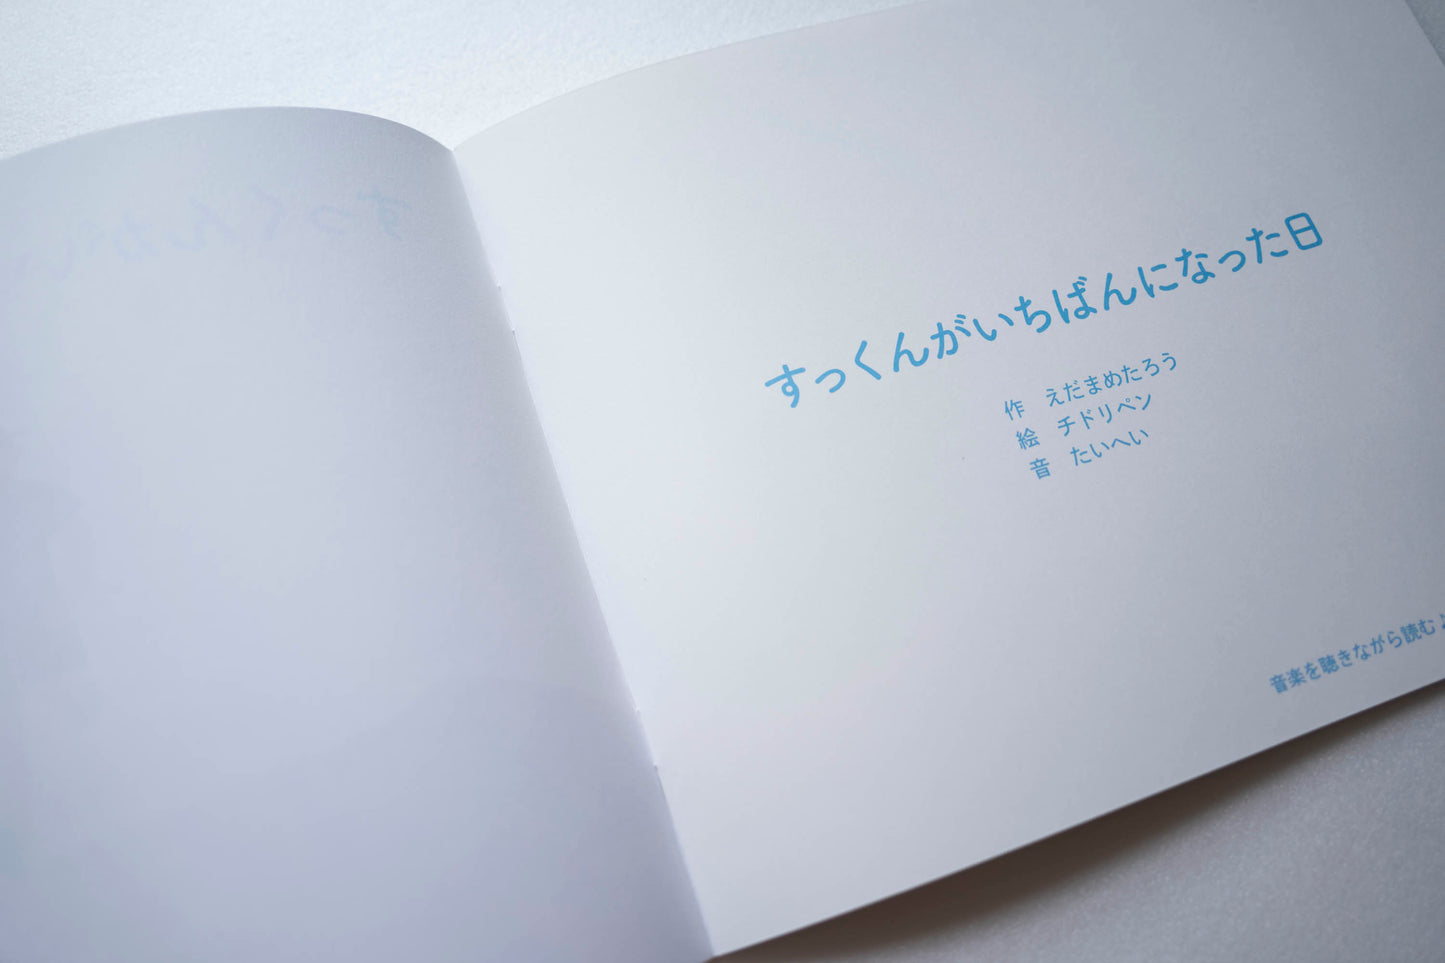 すっくんがいちばんになった日
作 えだまめたろう
絵 チドリペン
音 たいへい
音楽を聴きながら読む